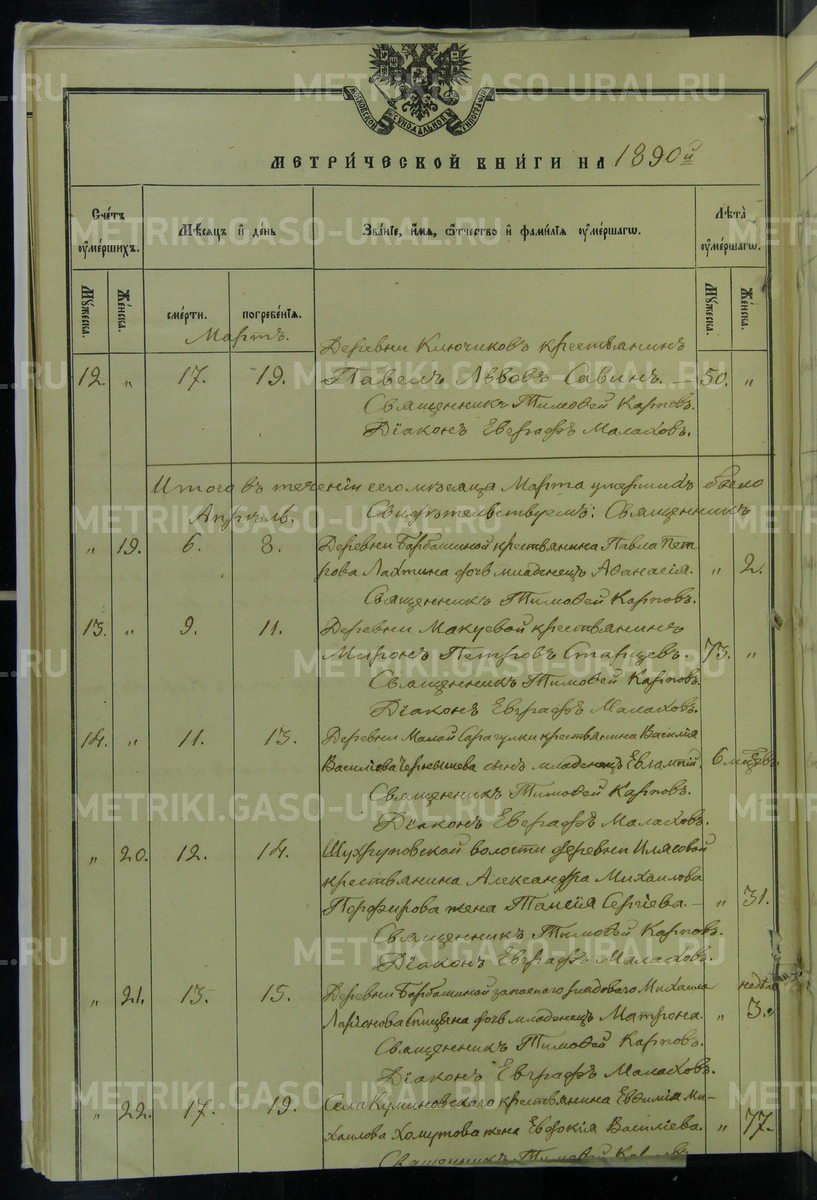 МОСКОВСКОЙ СУНОДАЛЬНОЙ ТИПОГРАФІИ
МЕТРИ́ЧЕСКОЙ КНИ́ГИ НА 1890й
Сче́тъ оу҆ме́ршихъ.
Мѣ́сяцъ и҆ де́нь
Зва́нїе, и҆́мѧ, ѻ҆́тчество и҆ фами́лїѧ оу҆ме́ршагѡ.
Лѣ́та оу҆ме́ршагѡ.
Му́жеска. Же́нска. сме́рти. погребе́нїѧ. Му́жеска. Же́нска.
Мартъ.
Деревни Ключиковъ крестьянинъ
12. „ 17. 19. Павелъ Львовъ Савинъ. — 50. „
Священникъ Тимофей Карповъ.
Діаконъ Евграфъ Малаховъ.
Итого въ теченіи сего мѣсяца Марта умершихъ было
Апрѣль. Свидѣтельствуемъ: Священникъ
„ 19. 6. 8. Деревни Барбашиной крестьянина Павла Пет-
рова Лахтина дочь младенецъ Аѳанасія. „ 2.
Священникъ Тимофей Карповъ.
13. „ 9. 11. Деревни Макуевой крестьянинъ
Миронъ Петровъ Старцевъ. 73. „
Священникъ Тимофей Карповъ.
Діаконъ Евграфъ Малаховъ.
14. „ 11. 13. Деревни Малой Сарагулки крестьянина Василія
Василіева Чернышева сынъ младенецъ Евлампій. 6 мѣсяцевъ
Священникъ Тимофей Карповъ.
Діаконъ Евграфъ Малаховъ.
„ 20. 12. 14. волости деревни Илясовой
крестьянина Александра Михаилова
Порфирова жена Таисія Сергіева. — „ 31.
Священникъ Тимофей Карповъ.
Діаконъ Евграфъ Малаховъ.
„ 21. 13. 15. Деревни Барбашиной запаснаго рядоваго Михаила недѣл.
Ларіонова Спицына дочь младенецъ Матрона. „ 3.
Священникъ Тимофей Карповъ.
Діаконъ Евграфъ Малаховъ.
„ 22. 17. 19. Села крестьянина Евфимія Ми-
хаилова Хомутова жена Евдокія Василіева. „ 77.
Священникъ Тимофей
METRIKI.GASO-URAL.RU